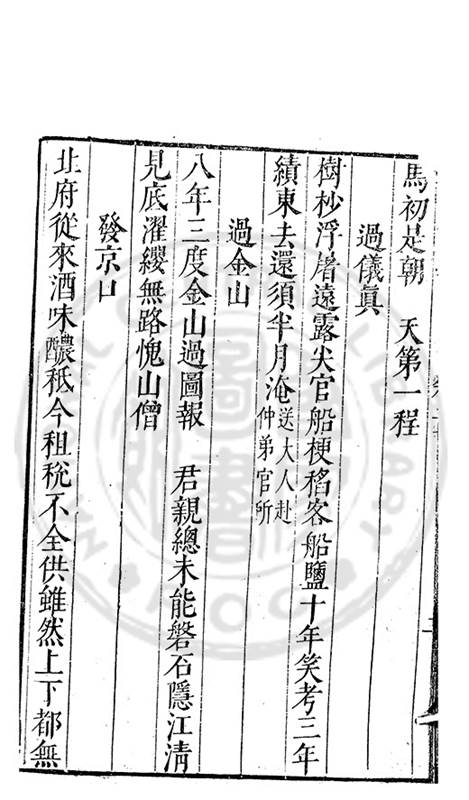 馬初是朝　天第一程
過儀眞
樹杪浮屠遠露尖官船梗稻客船鹽十年笑考三年
績東去還須半月淹送大人赴仲弟官所
過金山
八年三度金山過圖報　君親總未能磐石隱江清
見底濯纓無路愧山僧
發京口
北府從來酒味醲秪今租稅不全供雖然上下都無